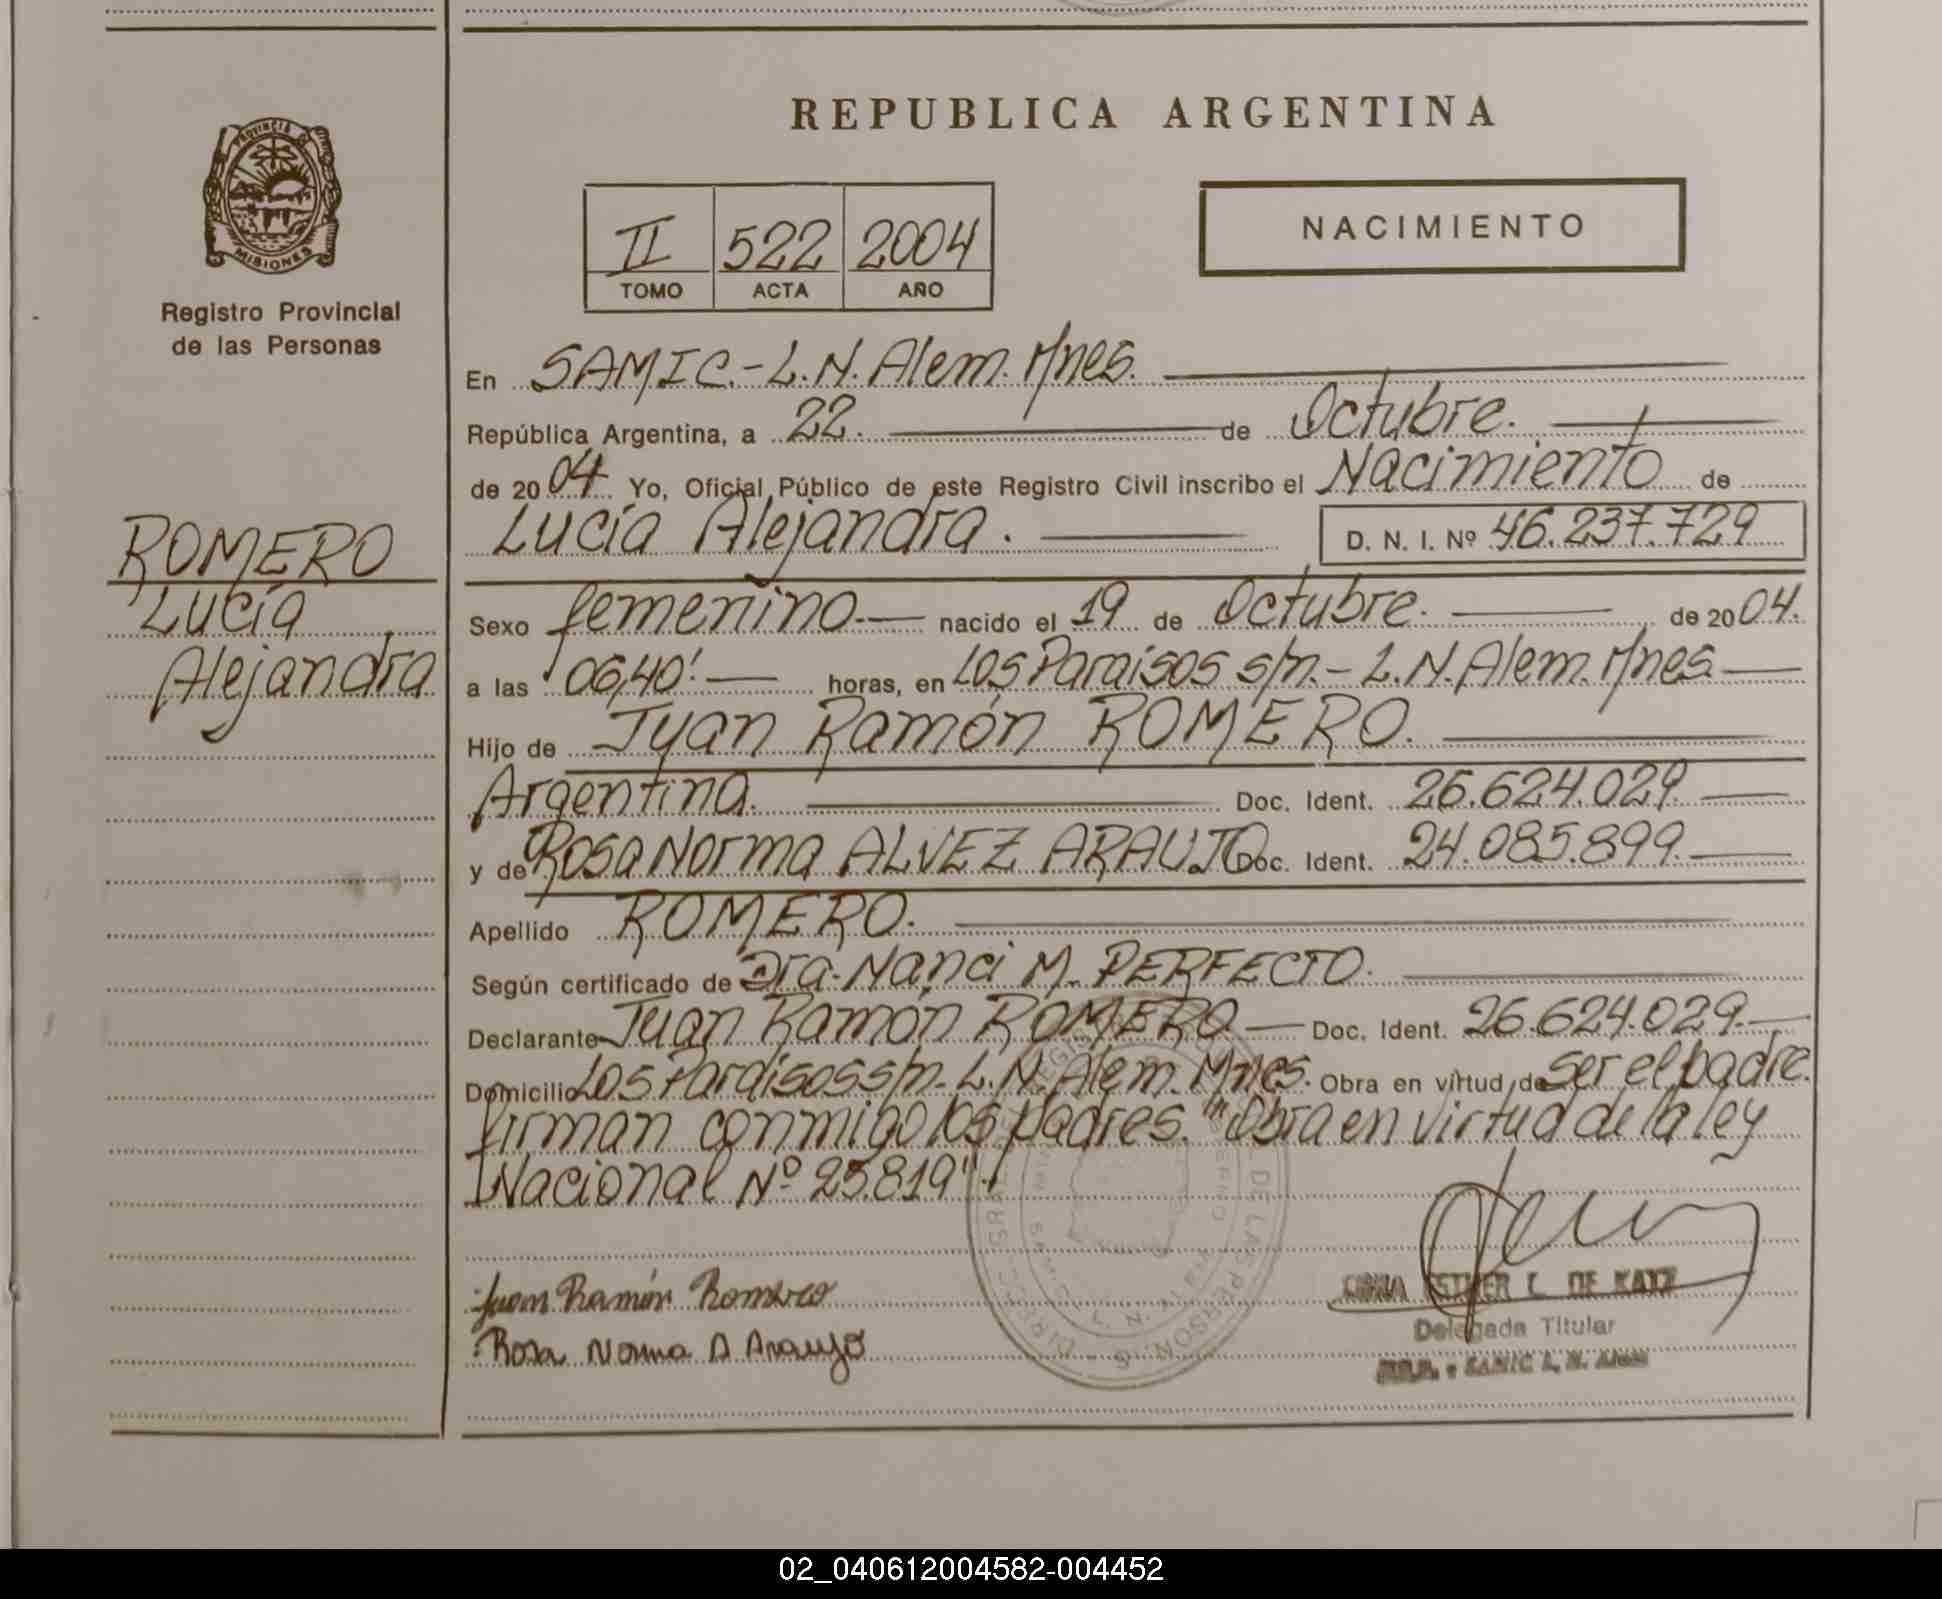 REPUBLICA ARGENTINA
PROVINCIA D
MISIONES
Registro Provincial
de las Personas
II 522 2004
TOMO ACTA AÑO
NACIMIENTO
En SAMIC.-L.N. Alem. Mnes.
República Argentina, a 22. de Octubre.
de 2004 Yo, Oficial Público de este Registro Civil inscribo el Nacimiento de
Lucía Alejandra. D. N. I. Nº 46.237.729
ROMERO
Lucía
Alejandra
Sexo femenino.- nacido el 19 de Octubre. de 2004.
a las 06,40'. horas, en Los Paraisos s/n.- L.N. Alem. Mnes.
Hijo de Juan Ramón ROMERO.
Argentina. Doc. Ident. 26.624.029.
y de Rosa Norma ALVEZ ARAUJO Doc. Ident. 24.085.899.
Apellido ROMERO.
Según certificado de Dra. Nanci M. PERFECTO.
Declarante Juan Ramón ROMERO Doc. Ident. 26.624.029.
Domicilio Los Paraisos s/n. L.N. Alem. Mnes. Obra en virtud de ser el padre.
firman conmigo los padres. "Obra en virtud de la ley
Nacional Nº 25.819".
DE LAS PERSONAS
Juan Ramón Romero
Rosa Norma A Araujo
ESTHER L. DE KATZ
Delegada Titular
SAMIC L. N. Alem
02_040612004582-004452